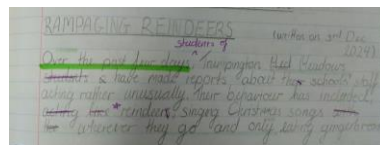 RAMPAGING REINDEERS
(written on 3rd Dec
2024)
students of
Over the past few days, Trumpington Mead Meadows
students & have made reports about the school staff
acting rather unusually. Their behaviour has included
acting like reindeers, singing Christmas songs
wherever they go and only eating gingerbread